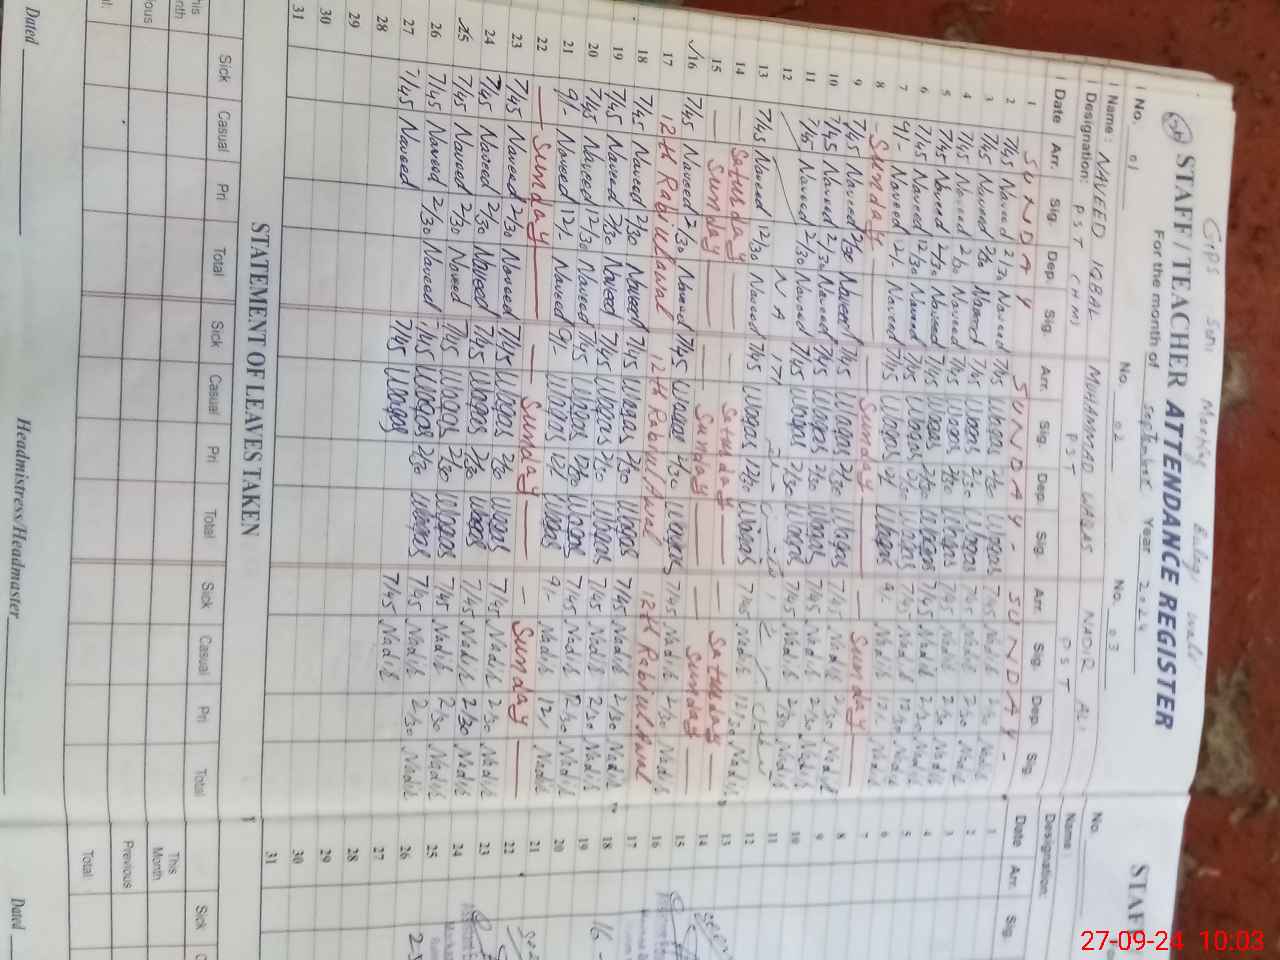 GPS
STAFF / TEACHER ATTENDANCE REGISTER
For the month of September Year 2024
No. 01 No. 02 No. 03
Name: NAVEED IQBAL MUHAMMAD WAQAS NADIR ALI
Designation: PST (HM) PST PST
Date Arr. Sig. Dep. Sig. Arr. Sig. Dep. Sig. Arr. Sig. Dep. Sig.
1 SUNDAY SUNDAY - SUNDAY -
2 7/45 Naveed 2/30 Naveed 7/45 Waqas 2/30 Waqas 7/45 Nadir 2/30 Nadir
3 7/45 Naveed 2/30 Naveed 7/45 Waqas 2/30 Waqas 7/45 Nadir 2/30 Nadir
4 7/45 Naveed 2/30 Naveed 7/45 Waqas 2/30 Waqas 7/45 Nadir 2/30 Nadir
5 7/45 Naveed 2/30 Naveed 7/45 Waqas 2/30 Waqas 7/45 Nadir 2/30 Nadir
6 7/45 Naveed 12/30 Naveed 7/45 Waqas 12/30 Waqas 7/45 Nadir 12/30 Nadir
7 9/- Naveed 2/- Naveed 7/45 Waqas Waqas 9/- Nadir 12/- Nadir
8 - Sunday - Sunday - Sunday -
9 7/45 Naveed 2/30 Naveed 7/45 Waqas 2/30 Waqas 7/45 Nadir 2/30 Nadir
10 7/45 Naveed 2/30 Naveed 7/45 Waqas 2/30 Waqas 7/45 Nadir 2/30 Nadir
11 7/45 Naveed 2/30 Naveed 7/45 Waqas 2/30 Waqas 7/45 Nadir 2/30 Nadir
12 NA 171
13 7/45 Naveed 12/30 Naveed 7/45 Waqas 12/30 Waqas 7/45 Nadir 12/30 Nadir
14 - Saturday - Saturday - Saturday -
15 - Sunday - Sunday - Sunday
16 7/45 Naveed 2/30 Naveed 7/45 Waqas 2/30 Waqas 7/45 Nadir 2/30 Nadir
17 12th Rabiulawal 12th Rabiul Awal 12th Rabiul Awal
18 7/45 Naveed 2/30 Naveed 7/45 Waqas 2/30 Waqas 7/45 Nadir 2/30 Nadir
19 7/45 Naveed 2/30 Naveed 7/45 Waqas 2/30 Waqas 7/45 Nadir 2/30 Nadir
20 7/45 Naveed 12/30 Naveed 7/45 Waqas 12/30 Waqas 7/45 Nadir 12/30 Nadir
21 9/- Naveed 12/- Naveed 9/- Waqas 12/- Waqas 9/- Nadir 12/- Nadir
22 - Sunday - Sunday - Sunday -
23 7/45 Naveed 2/30 Naveed 7/45 Waqas 2/30 Waqas 7/45 Nadir 2/30 Nadir
24 7/45 Naveed 2/30 Naveed 7/45 Waqas 2/30 Waqas 7/45 Nadir 2/30 Nadir
25 7/45 Naveed 2/30 Naveed 7/45 Waqas 2/30 Waqas 7/45 Nadir 2/30 Nadir
26 7/45 Naveed 2/30 Naveed 7/45 Waqas 2/30 Waqas 7/45 Nadir 2/30 Nadir
27 7/45 Naveed 7/45 Waqas 7/45 Nadir
28
29
30
31
STATEMENT OF LEAVES TAKEN
Sick Casual Pri Total Sick Casual Pri Total Sick Casual Pri Total
Dated Headmistress/Headmaster
STAF
No.
Name:
Designation:
Date Arr. Sig.
1
2
3
4
5
6
7
8
9
10
11
12
13
14
15
16
17
18
19
20
21
22
23
24
25
26
27
28
29
30
31
Sick
This Month
Previous
Total
Dated
27-09-24 10:03